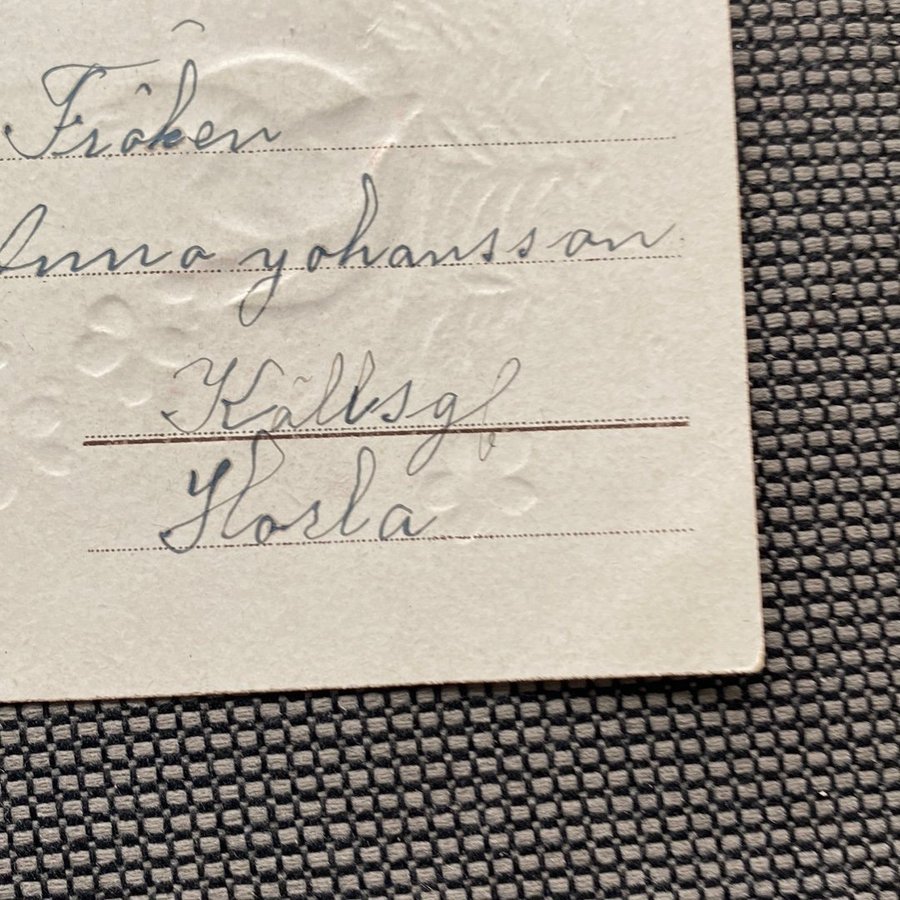 Fröken
Anna Johansson
Källsgb
Horla